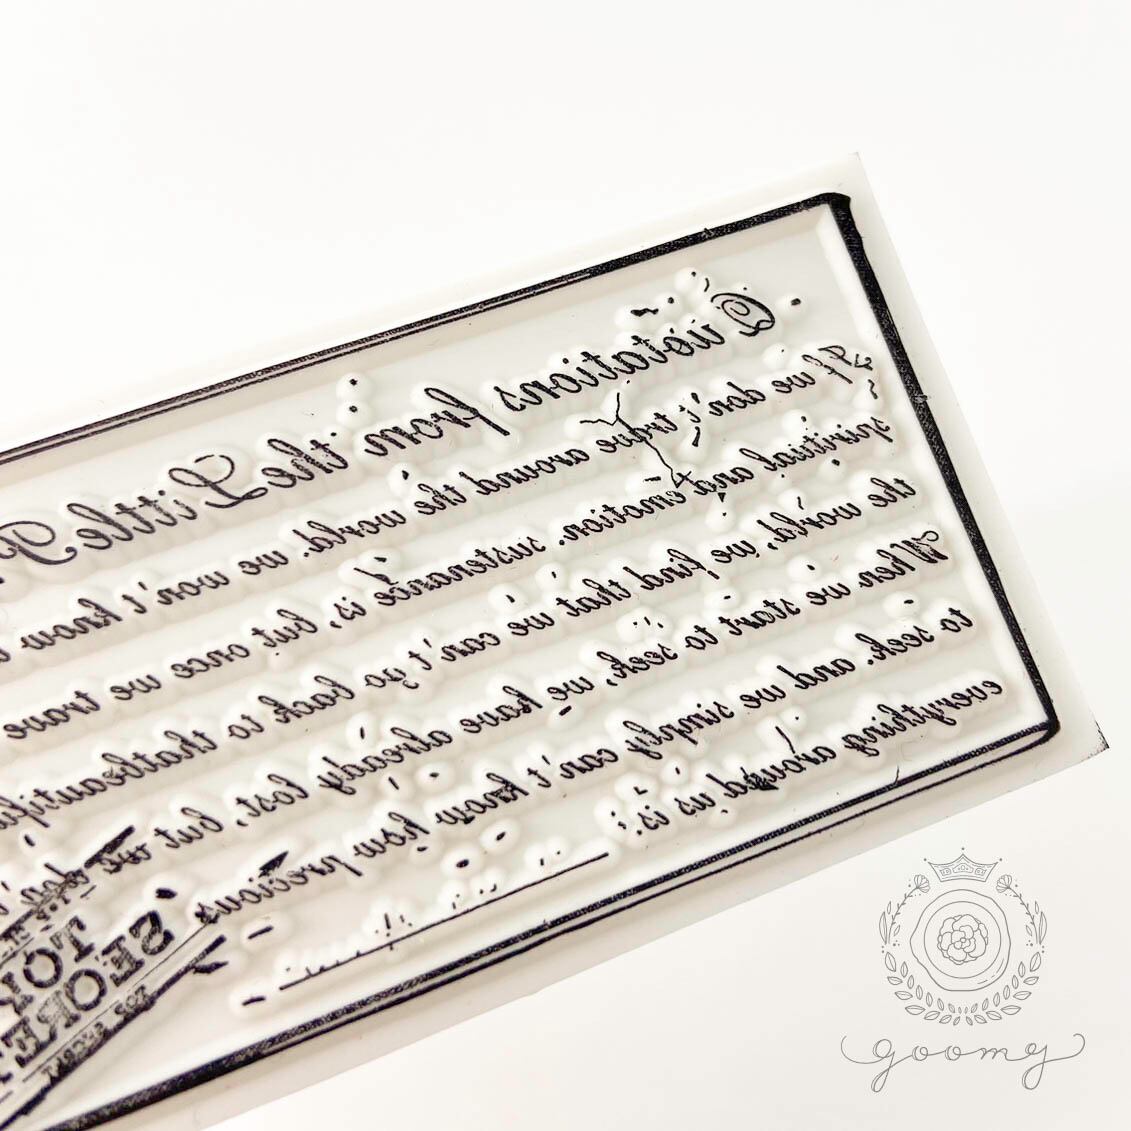 Quotations from the Little
If we don't trave around the world. we won't know
spiritual and emotion. sustenance is, but once we trave
the world, we find that we can't go back to
When we start to seek, we have already lost, but we don't
to seek. and. we simply can't know how precious
everything around us is.
goomy